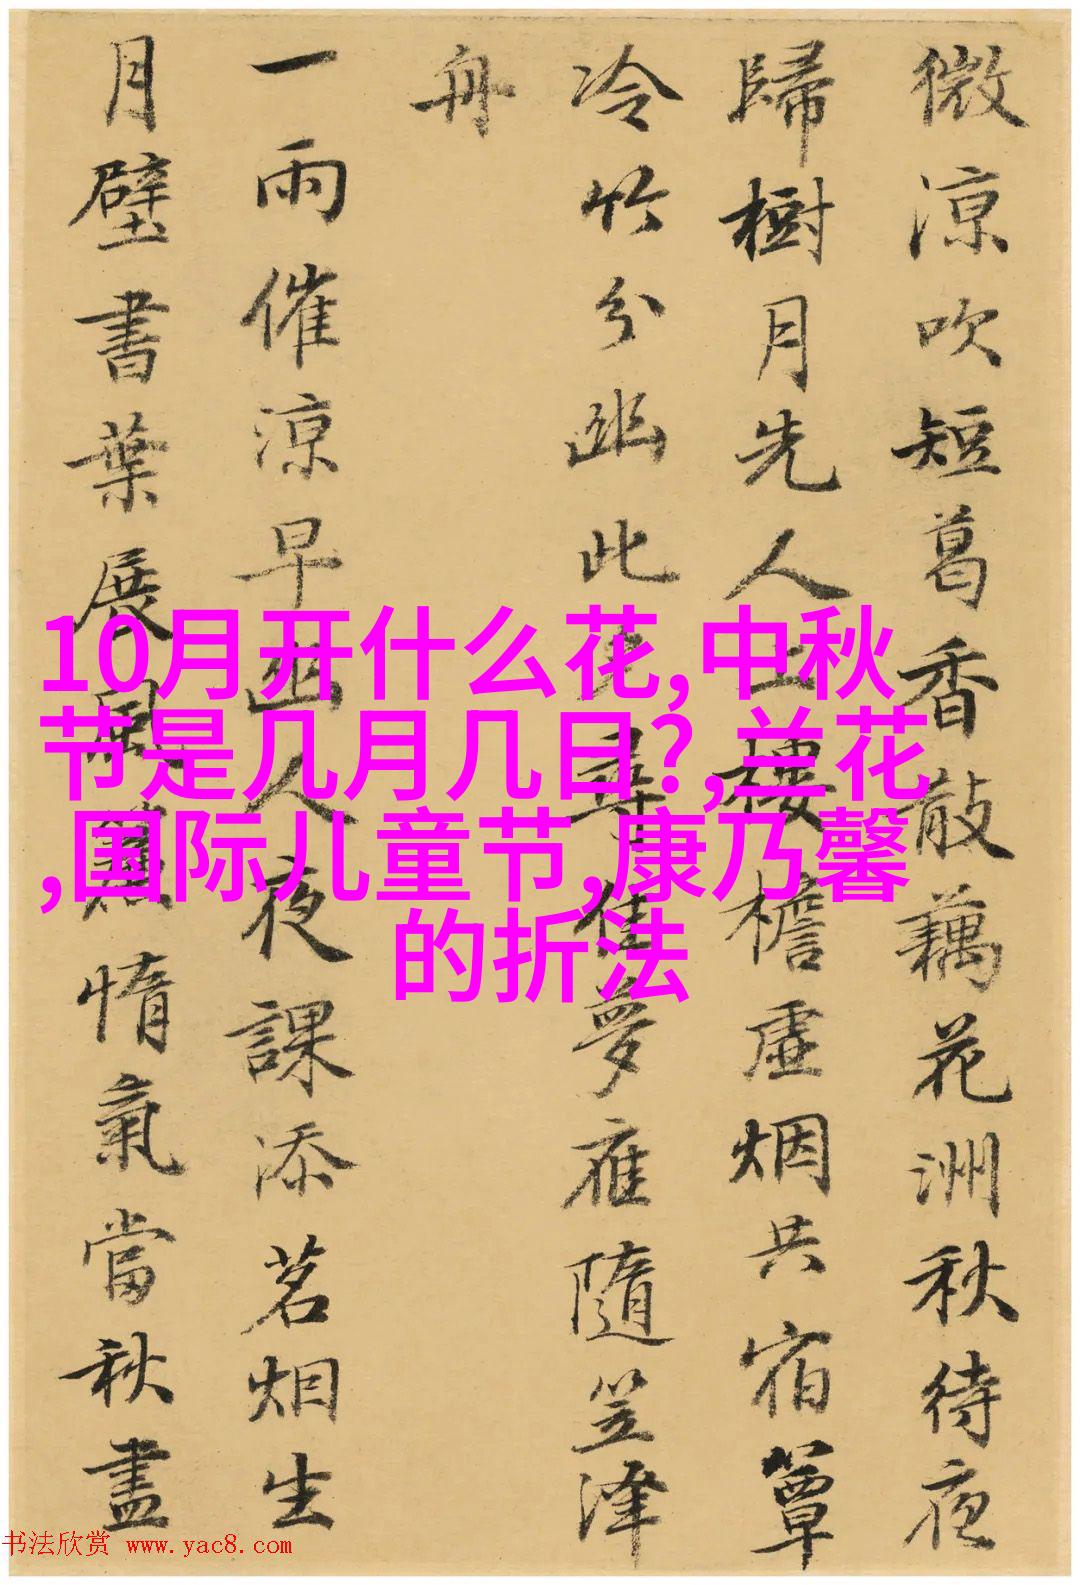 微涼吹短葛香散藕花洲秋待夜
歸樹月先人上樓檐虛烟共宿簟
冷竹分幽此尋佳夢雁隨笠澤
舟
一雨催涼早幽人夜課添茗烟生
月壁書葉展風惰氣當秋盡
10月开什么花,中秋
节是几月几日?,兰花
,国际儿童节,康乃馨
的折法
书法欣赏 www.yac8.com